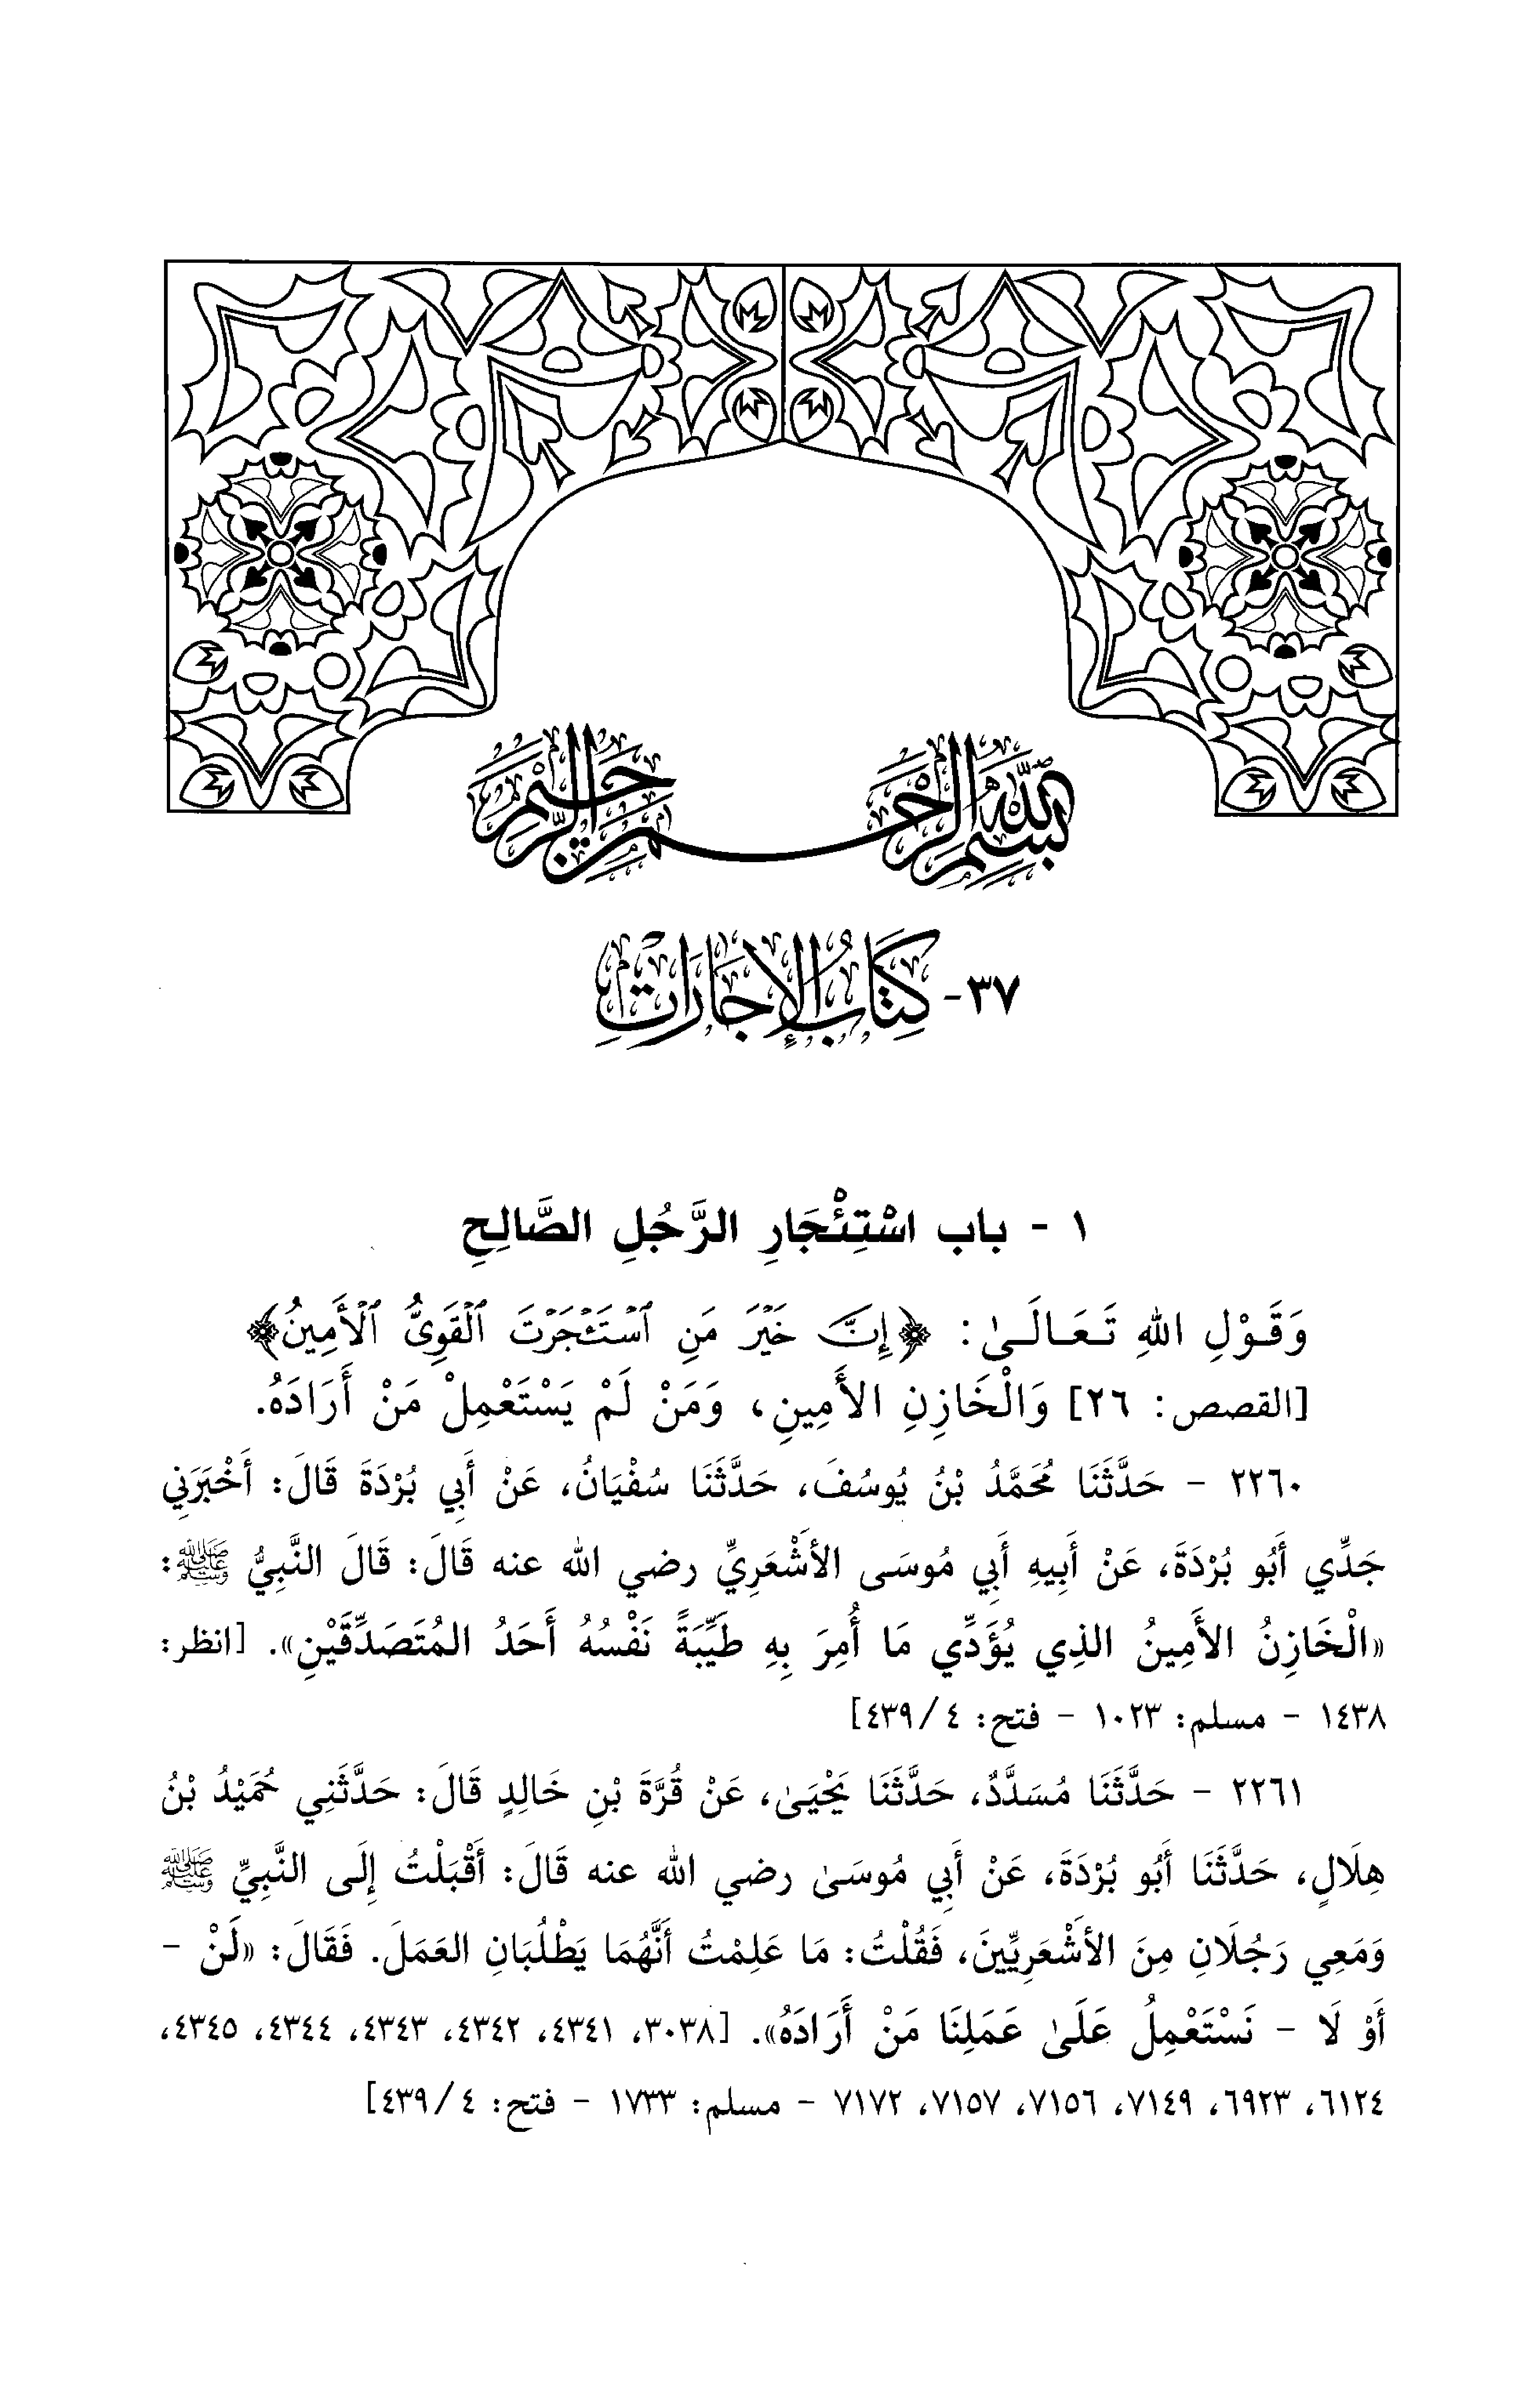 بِسْمِ اللَّهِ الرَّحْمَنِ الرَّحِيمِ
٣٧- كِتَابُ الإِجَارَاتِ
١ - باب اسْتِئْجَارِ الرَّجُلِ الصَّالِحِ
وَقَوْلِ اللهِ تَعَالَىٰ: ﴿إِنَّ خَيْرَ مَنِ ٱسْتَـْٔجَرْتَ ٱلْقَوِىُّ ٱلْأَمِينُ﴾
[القصص: ٢٦] وَالْخَازِنِ الأَمِينِ، وَمَنْ لَمْ يَسْتَعْمِلْ مَنْ أَرَادَهُ.
٢٢٦٠ - حَدَّثَنَا مُحَمَّدُ بْنُ يُوسُفَ، حَدَّثَنَا سُفْيَانُ، عَنْ أَبِي بُرْدَةَ قَالَ: أَخْبَرَنِي
جَدِّي أَبُو بُرْدَةَ، عَنْ أَبِيهِ أَبِي مُوسَى الأَشْعَرِيِّ رضي الله عنه قَالَ: قَالَ النَّبِيُّ ﷺ:
«الْخَازِنُ الأَمِينُ الذِي يُؤَدِّي مَا أُمِرَ بِهِ طَيِّبَةً نَفْسُهُ أَحَدُ المُتَصَدِّقَيْنِ». [انظر:
١٤٣٨ - مسلم: ١٠٢٣ - فتح: ٤/ ٤٣٩]
٢٢٦١ - حَدَّثَنَا مُسَدَّدٌ، حَدَّثَنَا يَحْيَىٰ، عَنْ قُرَّةَ بْنِ خَالِدٍ قَالَ: حَدَّثَنِي حُمَيْدُ بْنُ
هِلَالٍ، حَدَّثَنَا أَبُو بُرْدَةَ، عَنْ أَبِي مُوسَىٰ رضي الله عنه قَالَ: أَقْبَلْتُ إِلَى النَّبِيِّ ﷺ
وَمَعِي رَجُلَانِ مِنَ الأَشْعَرِيِّينَ، فَقُلْتُ: مَا عَلِمْتُ أَنَّهُمَا يَطْلُبَانِ العَمَلَ. فَقَالَ: «لَنْ -
أَوْ لَا - نَسْتَعْمِلُ عَلَىٰ عَمَلِنَا مَنْ أَرَادَهُ». [٣٠٣٨، ٤٣٤١، ٤٣٤٢، ٤٣٤٣، ٤٣٤٤، ٤٣٤٥،
٦١٢٤، ٦٩٢٣، ٧١٤٩، ٧١٥٦، ٧١٥٧، ٧١٧٢ - مسلم: ١٧٣٣ - فتح: ٤/ ٤٣٩]